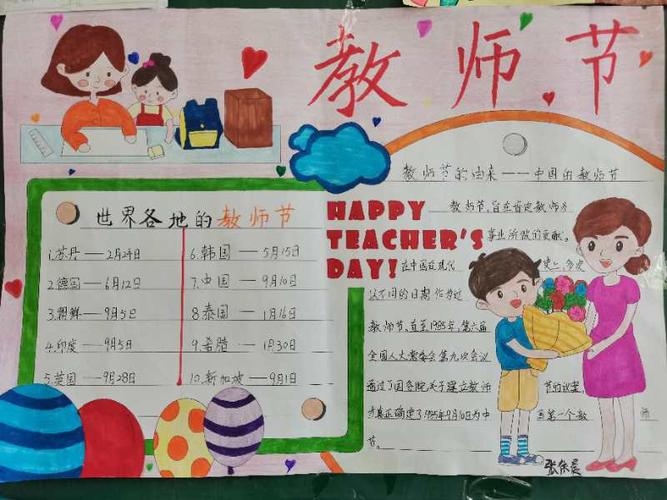 教师节
世界各地的教师节
1.苏丹——2月24日
2.德国——6月12日
3.朝鲜——9月5日
4.印度——9月5日
5.英国——9月28日
6.韩国——5月15日
7.中国——9月10日
8.泰国——1月16日
9.希腊——1月30日
10.新加坡——9月1日
HAPPY
TEACHER'S
DAY!
教师节的由来——中国的教师节
教师节,旨在肯定教师为
事业所做的贡献。
在中国近现代 史上,多次
以不同的日期作为过
教师节,直至1985年,第六届
全国人大常委会第九次会议
通过了国务院关于建立教师 节的议案,
才真正确定了1985年9月10日为中 国第一个教
节。